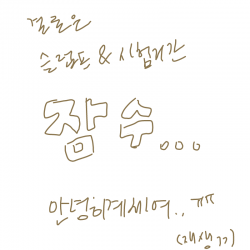 결론은
슬럼프 & 시험기간
잠수...
안녕히계세여..
(재생ㄱㄱ)